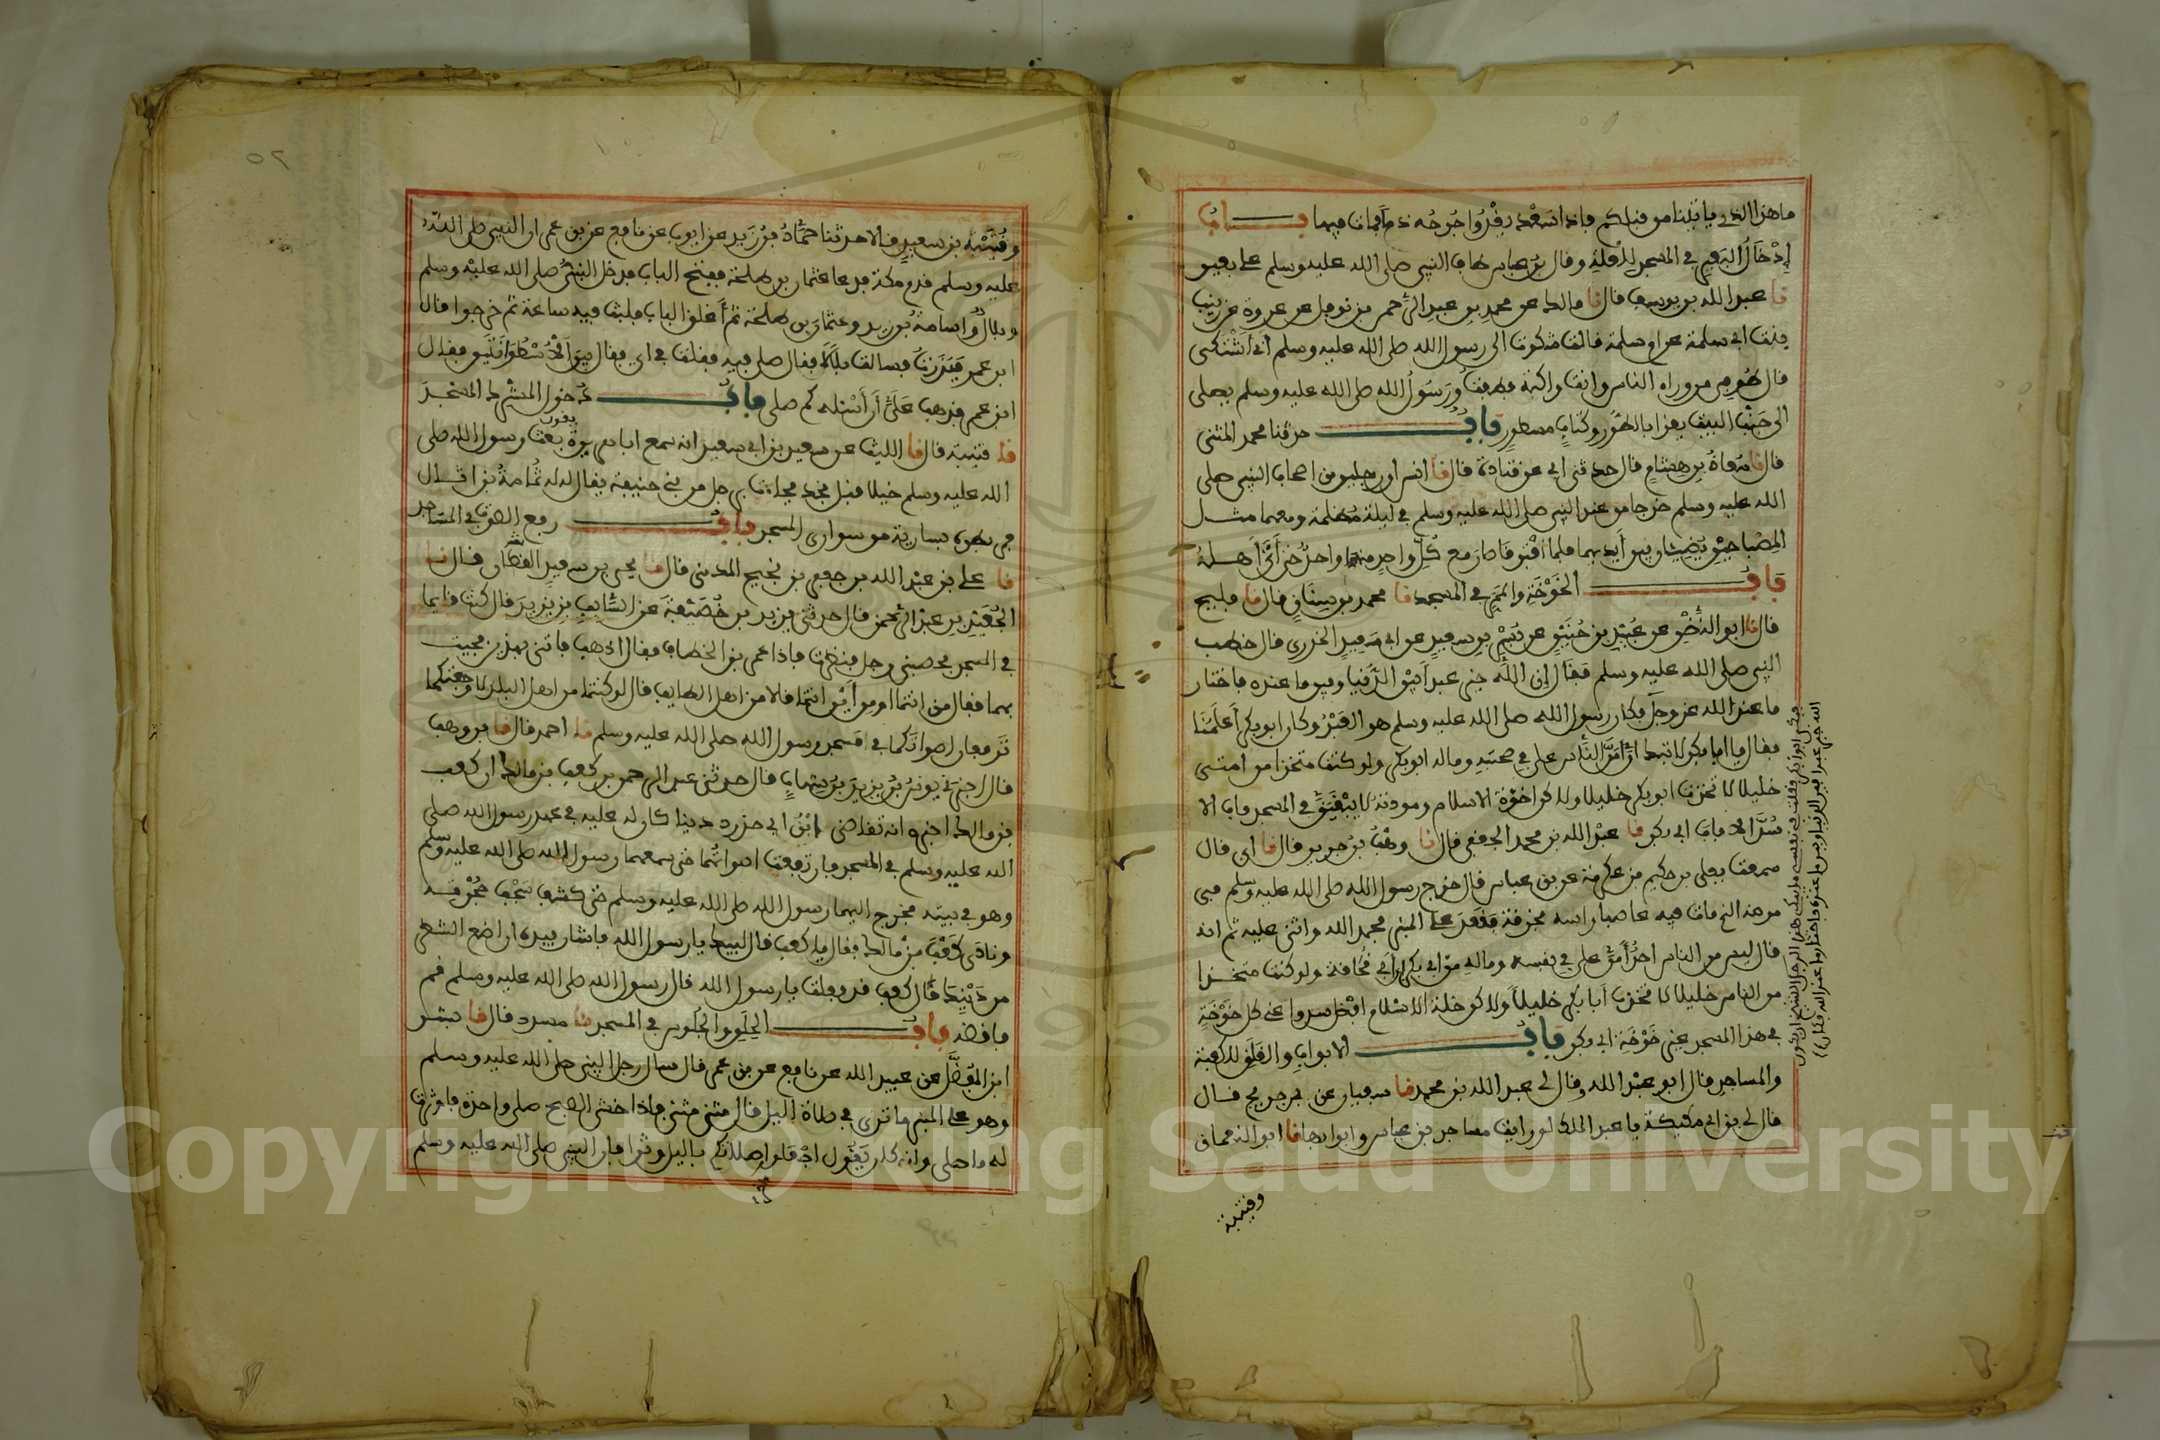 ما هذا الذي ياتينا من قبلكم فاذا سعد يغذوا جرحه دما فمات فيها باب
إدخال البعير في المسجد للعلة وقال بن عباس طاف النبي صلى الله عليه وسلم على بعير
نا عبد الله بن يوسف قال نا مالك عن محمد بن عبد الرحمن بن نوفل عن عروة عن زينب
بنت ابي سلمة عن ام سلمة قالت شكوت الى رسول الله صلى الله عليه وسلم أني أشتكي
قال طوفي من وراء الناس وانت راكبة فطفت ورسول الله صلى الله عليه وسلم يصلي
الى جنب البيت يقرا بالطور وكتاب مسطور باب حدثنا محمد المثنى
قال نا معاذ بن هشام قال حدثني ابي عن قتادة قال نا انس ان رجلين من اصحاب النبي صلى
الله عليه وسلم خرجا من عند النبي صلى الله عليه وسلم في ليلة مظلمة ومعهما مثل
المصباحين يضيئان بين أيديهما فلما افترقا صار مع كل واحد منهما واحد حتى أتى أهله
باب الخوخة والممر في المسجد نا محمد بن سنان قال نا فليح
قال نا ابو النضر عن عبيد بن حنين عن بسر بن سعيد عن ابي سعيد الخدري قال خطب
النبي صلى الله عليه وسلم فقال إن الله خير عبدا بين الدنيا وبين ما عنده فاختار
ما عند الله عز وجل فكان رسول الله صلى الله عليه وسلم هو العبد وكان ابو بكر أعلمنا
فقال يا ابا بكر لا تبك ان أمن الناس علي في صحبته وماله ابو بكر ولو كنت متخذا من امتي
خليلا لاتخذت ابو بكر خليلا ولكن اخوة الاسلام ومودته لا يبقين في المسجد باب الا
سد الا باب ابي بكر نا عبد الله بن محمد الجعفي قال نا وهب بن جرير قال نا ابي قال
سمعت يعلى بن حكيم عن عكرمة عن بن عباس قال خرج رسول الله صلى الله عليه وسلم في
مرضه الذي مات فيه عاصبا راسه بخرقة فقعد على المنبر فحمد الله واثنى عليه ثم انه
قال ليس من الناس احد أمن علي في نفسه وماله من ابي بكر بن أبي قحافة ولو كنت متخذا
من الناس خليلا لاتخذت أبا بكر خليلا ولكن خلة الاسلام افضل سدوا عني كل خوخة
في هذا المسجد غير خوخة ابي بكر باب الابواب والغلق للكعبة
والمساجد قال ابو عبد الله وقال لي عبد الله بن محمد نا سفيان عن بن جريج قال
قال لي بن ابي مليكة يا عبد الملك لو رايت مساجد بن عباس وابوابها نا ابو النعمان
وقتيبة
وقتيبة بن سعيد قالا حدثنا حماد بن زيد عن ايوب عن نافع عن بن عمر ان النبي صلى الله
عليه وسلم قدم مكة فدعا عثمان بن طلحة ففتح الباب فدخل النبي صلى الله عليه وسلم
وبلال واسامة بن زيد وعثمان بن طلحة ثم أغلق الباب فلبث فيه ساعة ثم خرجوا قال
ابن عمر فبدرت فسالت بلالا فقال صلى فيه فقلت في اي فقال بين الاسطوانتين فقال
ابن عمر فذهب علي أن أسئله كم صلى باب دخول المشرك المسجد
نا قتيبة قال نا الليث عن سعيد بن ابي سعيد انه سمع ابا هريرة يقول بعث رسول الله صلى
الله عليه وسلم خيلا قبل نجد فجاءت برجل من بني حنيفة يقال له ثمامة بن اثال
فربطوه بسارية من سواري المسجد باب رفع الصوت في المساجد
نا علي بن عبد الله بن جعفر بن نجيح المديني قال نا يحيى بن سعيد القطان قال نا
الجعيد بن عبد الرحمن قال حدثني يزيد بن خصيفة عن السايب بن يزيد قال كنت قايما
في المسجد فحصبني رجل فنظرت فاذا عمر بن الخطاب فقال اذهب فاتني بهذين فجيت
بهما فقال من انتما او من أين انتما قالا من اهل الطايف قال لو كنتما من اهل البلد لاوجعتكما
ترفعان اصواتكما في مسجد رسول الله صلى الله عليه وسلم نا احمد قال نا بن وهب
قال اخبرني يونس بن يزيد بن شهاب قال حدثني عبد الله بن كعب بن مالك ان كعب
بن مالك اخبره انه تقاضى ابن ابي حدرد دينا كان له عليه في عهد رسول الله صلى
الله عليه وسلم في المسجد فارتفعت اصواتهما حتى سمعهما رسول الله صلى الله عليه وسلم
وهو في بيته فخرج اليهما رسول الله صلى الله عليه وسلم حتى كشف سجف حجرته
ونادى كعب بن مالك فقال يا كعب قال لبيك يا رسول الله فاشار بيده ان اضع الشطر
من دينك قال كعب قد فعلت يا رسول الله قال رسول الله صلى الله عليه وسلم قم
فاقضه باب الحلق والجلوس في المسجد نا مسدد قال نا بشر
ابن المفضل عن عبيد الله عن نافع عن بن عمر قال سال رجل النبي صلى الله عليه وسلم
وهو على المنبر ما ترى في صلاة الليل قال مثنى مثنى فاذا خشي الصبح صلى واحدة فاوترت
له ما صلى وانه كان يقول اجعلوا صلاتكم باليل وترا فان النبي صلى الله عليه وسلم
Copyright © King Saud University